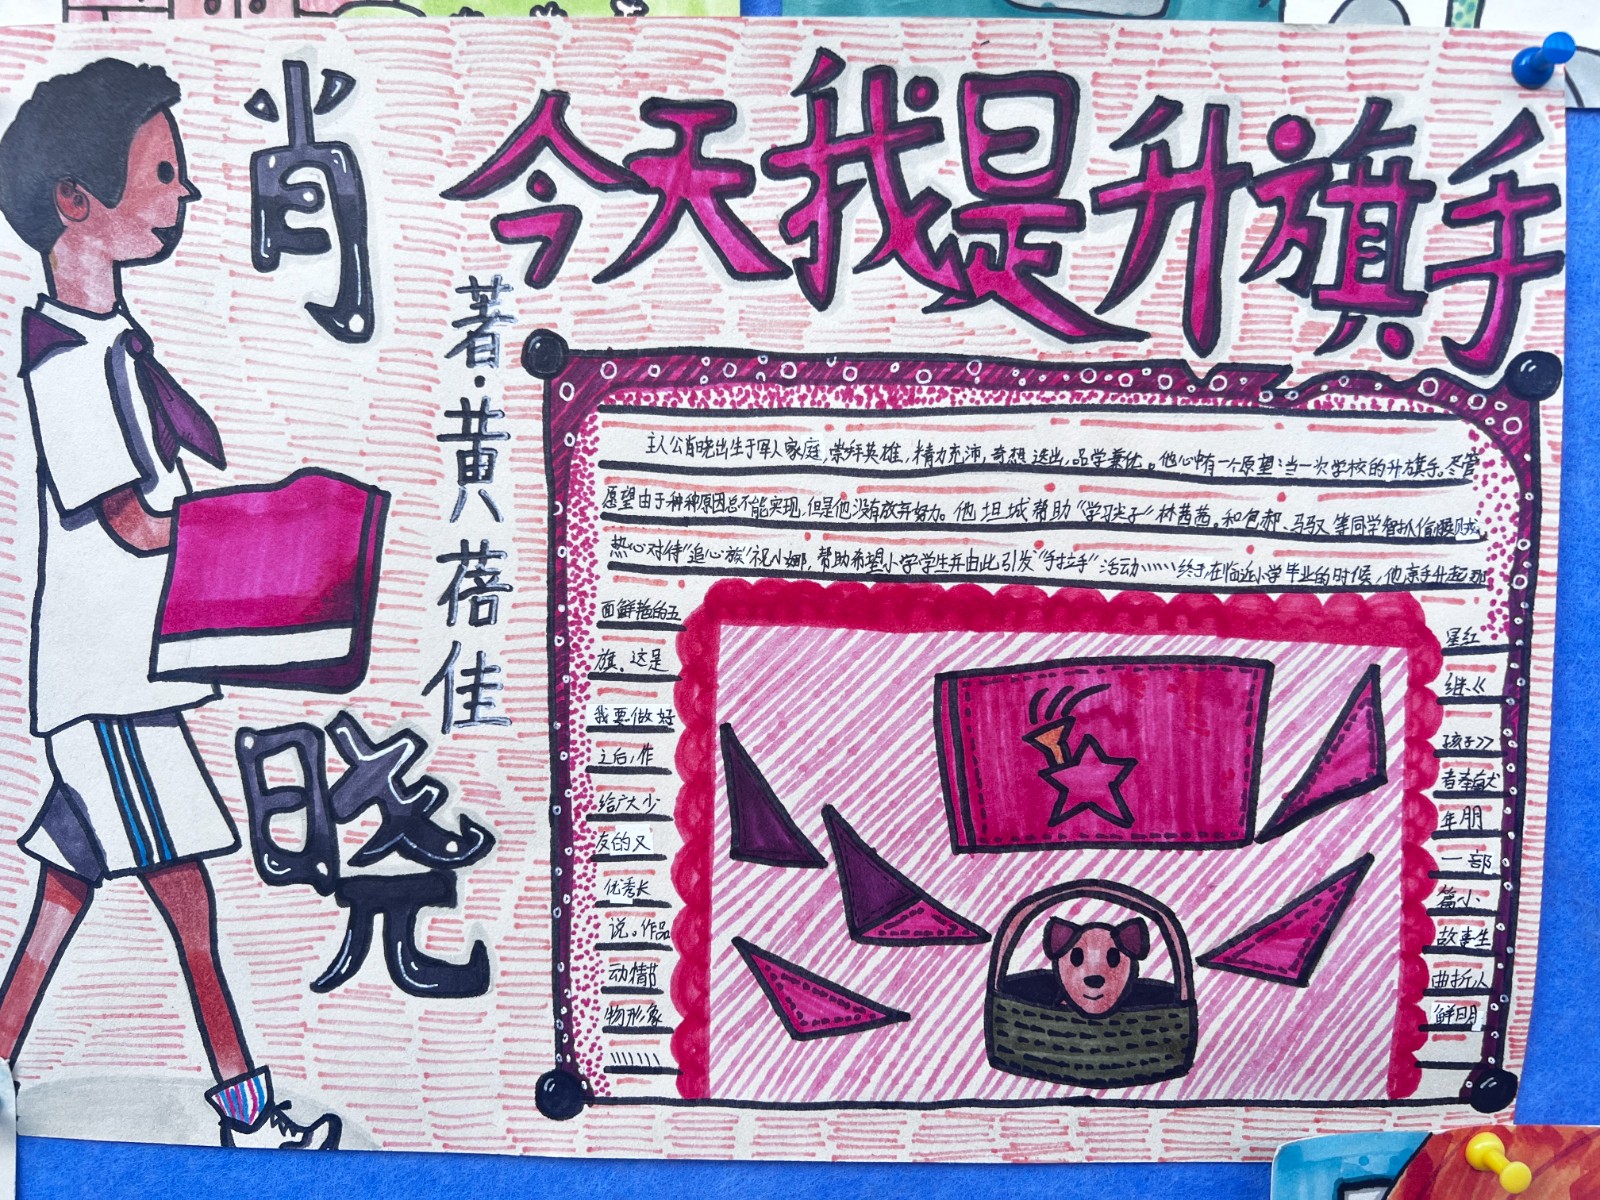 今天我是升旗手
肖晓
著·黄蓓佳
主人公肖晓出生于军人家庭,崇拜英雄,精力充沛,奇想迭出,品学兼优。他心中有一个愿望:当一次学校的升旗手。尽管
愿望由于种种原因总不能实现,但是他没有放弃努力。他坦城帮助“学习尖子”林茜茜。和包郝、马驭等同学智扒偷
热心对待“追心族”祝小娜,帮助希望小学学生并由此引发“手拉手”活动……终于在临近小学毕业的时候,他亲手升起那
面鲜艳的五星红
旗。这是继《
我要做好孩子》
之后,作者奉献
给广大少年朋
友的又一部
优秀长篇小
说。作品故事生
动情节曲折人
物形象鲜明